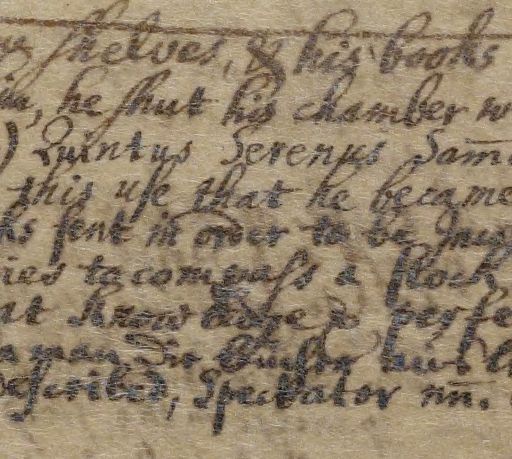 shelves, & his books
he shut his chamber w
) Quintus Serenus Sam̄
this use that he became
ks sent in order to be
ies to compass a flock
at knowledge & perfe
man Sir but
bescribed, Spectator nn.